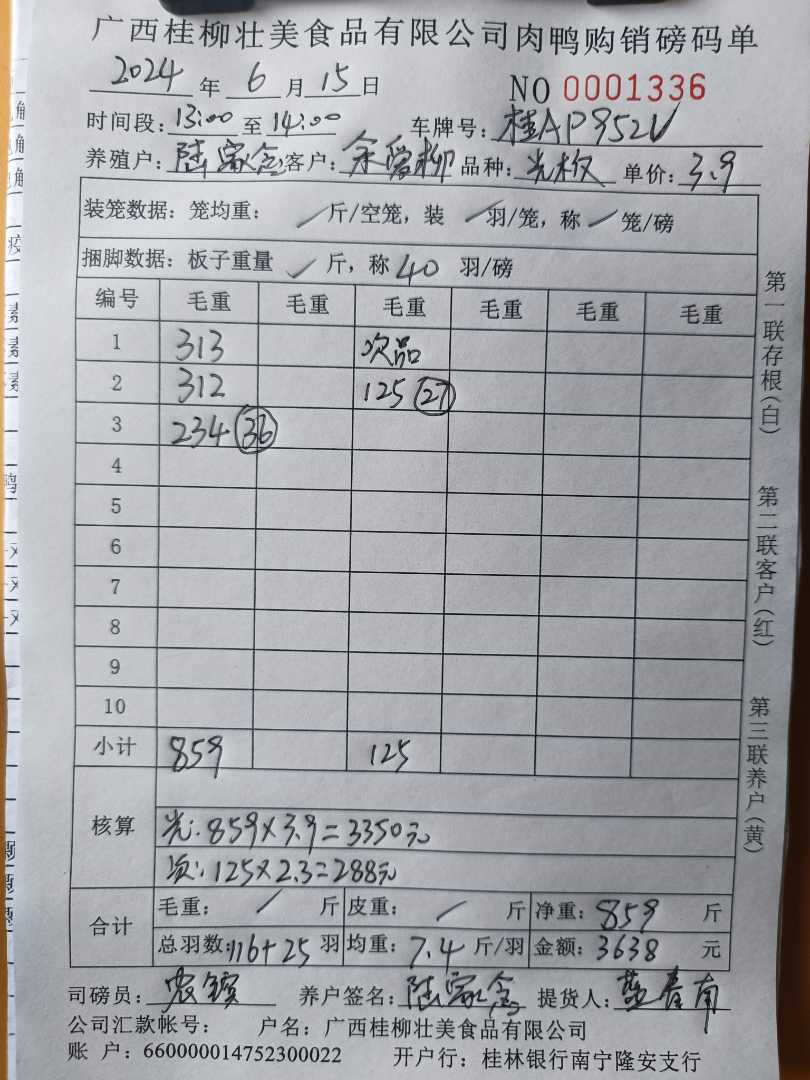 广西桂柳壮美食品有限公司肉鸭购销磅码单
2024 年 6 月 15 日 NO 0001336
时间段: 13:00 至 14:00 车牌号: 桂AP952V
养殖户: 陆家念 客户: 余爱柳 品种: 光板 单价: 3.9
装笼数据: 笼均重: / 斤/空笼, 装 / 羽/笼, 称 / 笼/磅
捆脚数据: 板子重量 / 斤, 称 40 羽/磅
编号 毛重 毛重 毛重 毛重 毛重 毛重
1 313 次品
2 312 125 27
3 234 36
4
5
6
7
8
9
10
小计 859 125
核算
光: 859×3.9=3350元
次: 125×2.3=288元
合计
毛重: / 斤 皮重: / 斤 净重: 859 斤
总羽数: 116+25 羽 均重: 7.4 斤/羽 金额: 3638 元
司磅员: 养户签名: 陆家念 提货人: 春南
公司汇款帐号: 户名: 广西桂柳壮美食品有限公司
账 户: 660000014752300022 开户行: 桂林银行南宁隆安支行
第一联存根(白)
第二联客户(红)
第三联养户(黄)